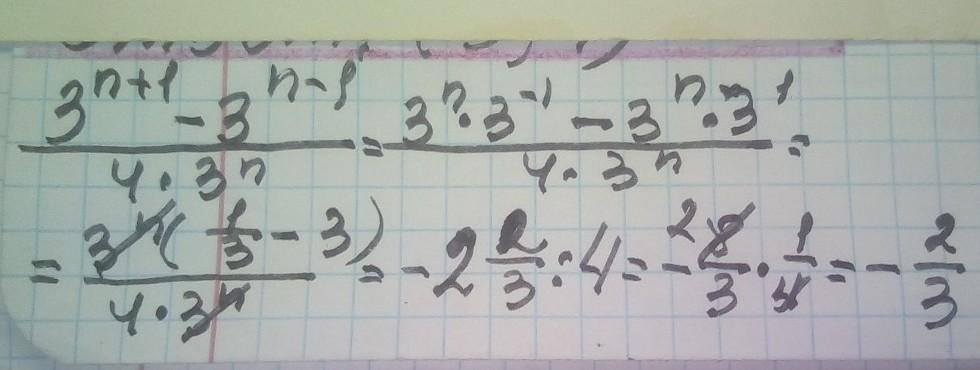 (3^{n+1} - 3^{n-1}) / (4 · 3^n) = (3^n · 3^{-1} - 3^n · 3^1) / (4 · 3^n) =
= 3^n (1/3 - 3) / (4 · 3^n) = -2 2/3 : 4 = -8/3 · 1/4 = - 2/3